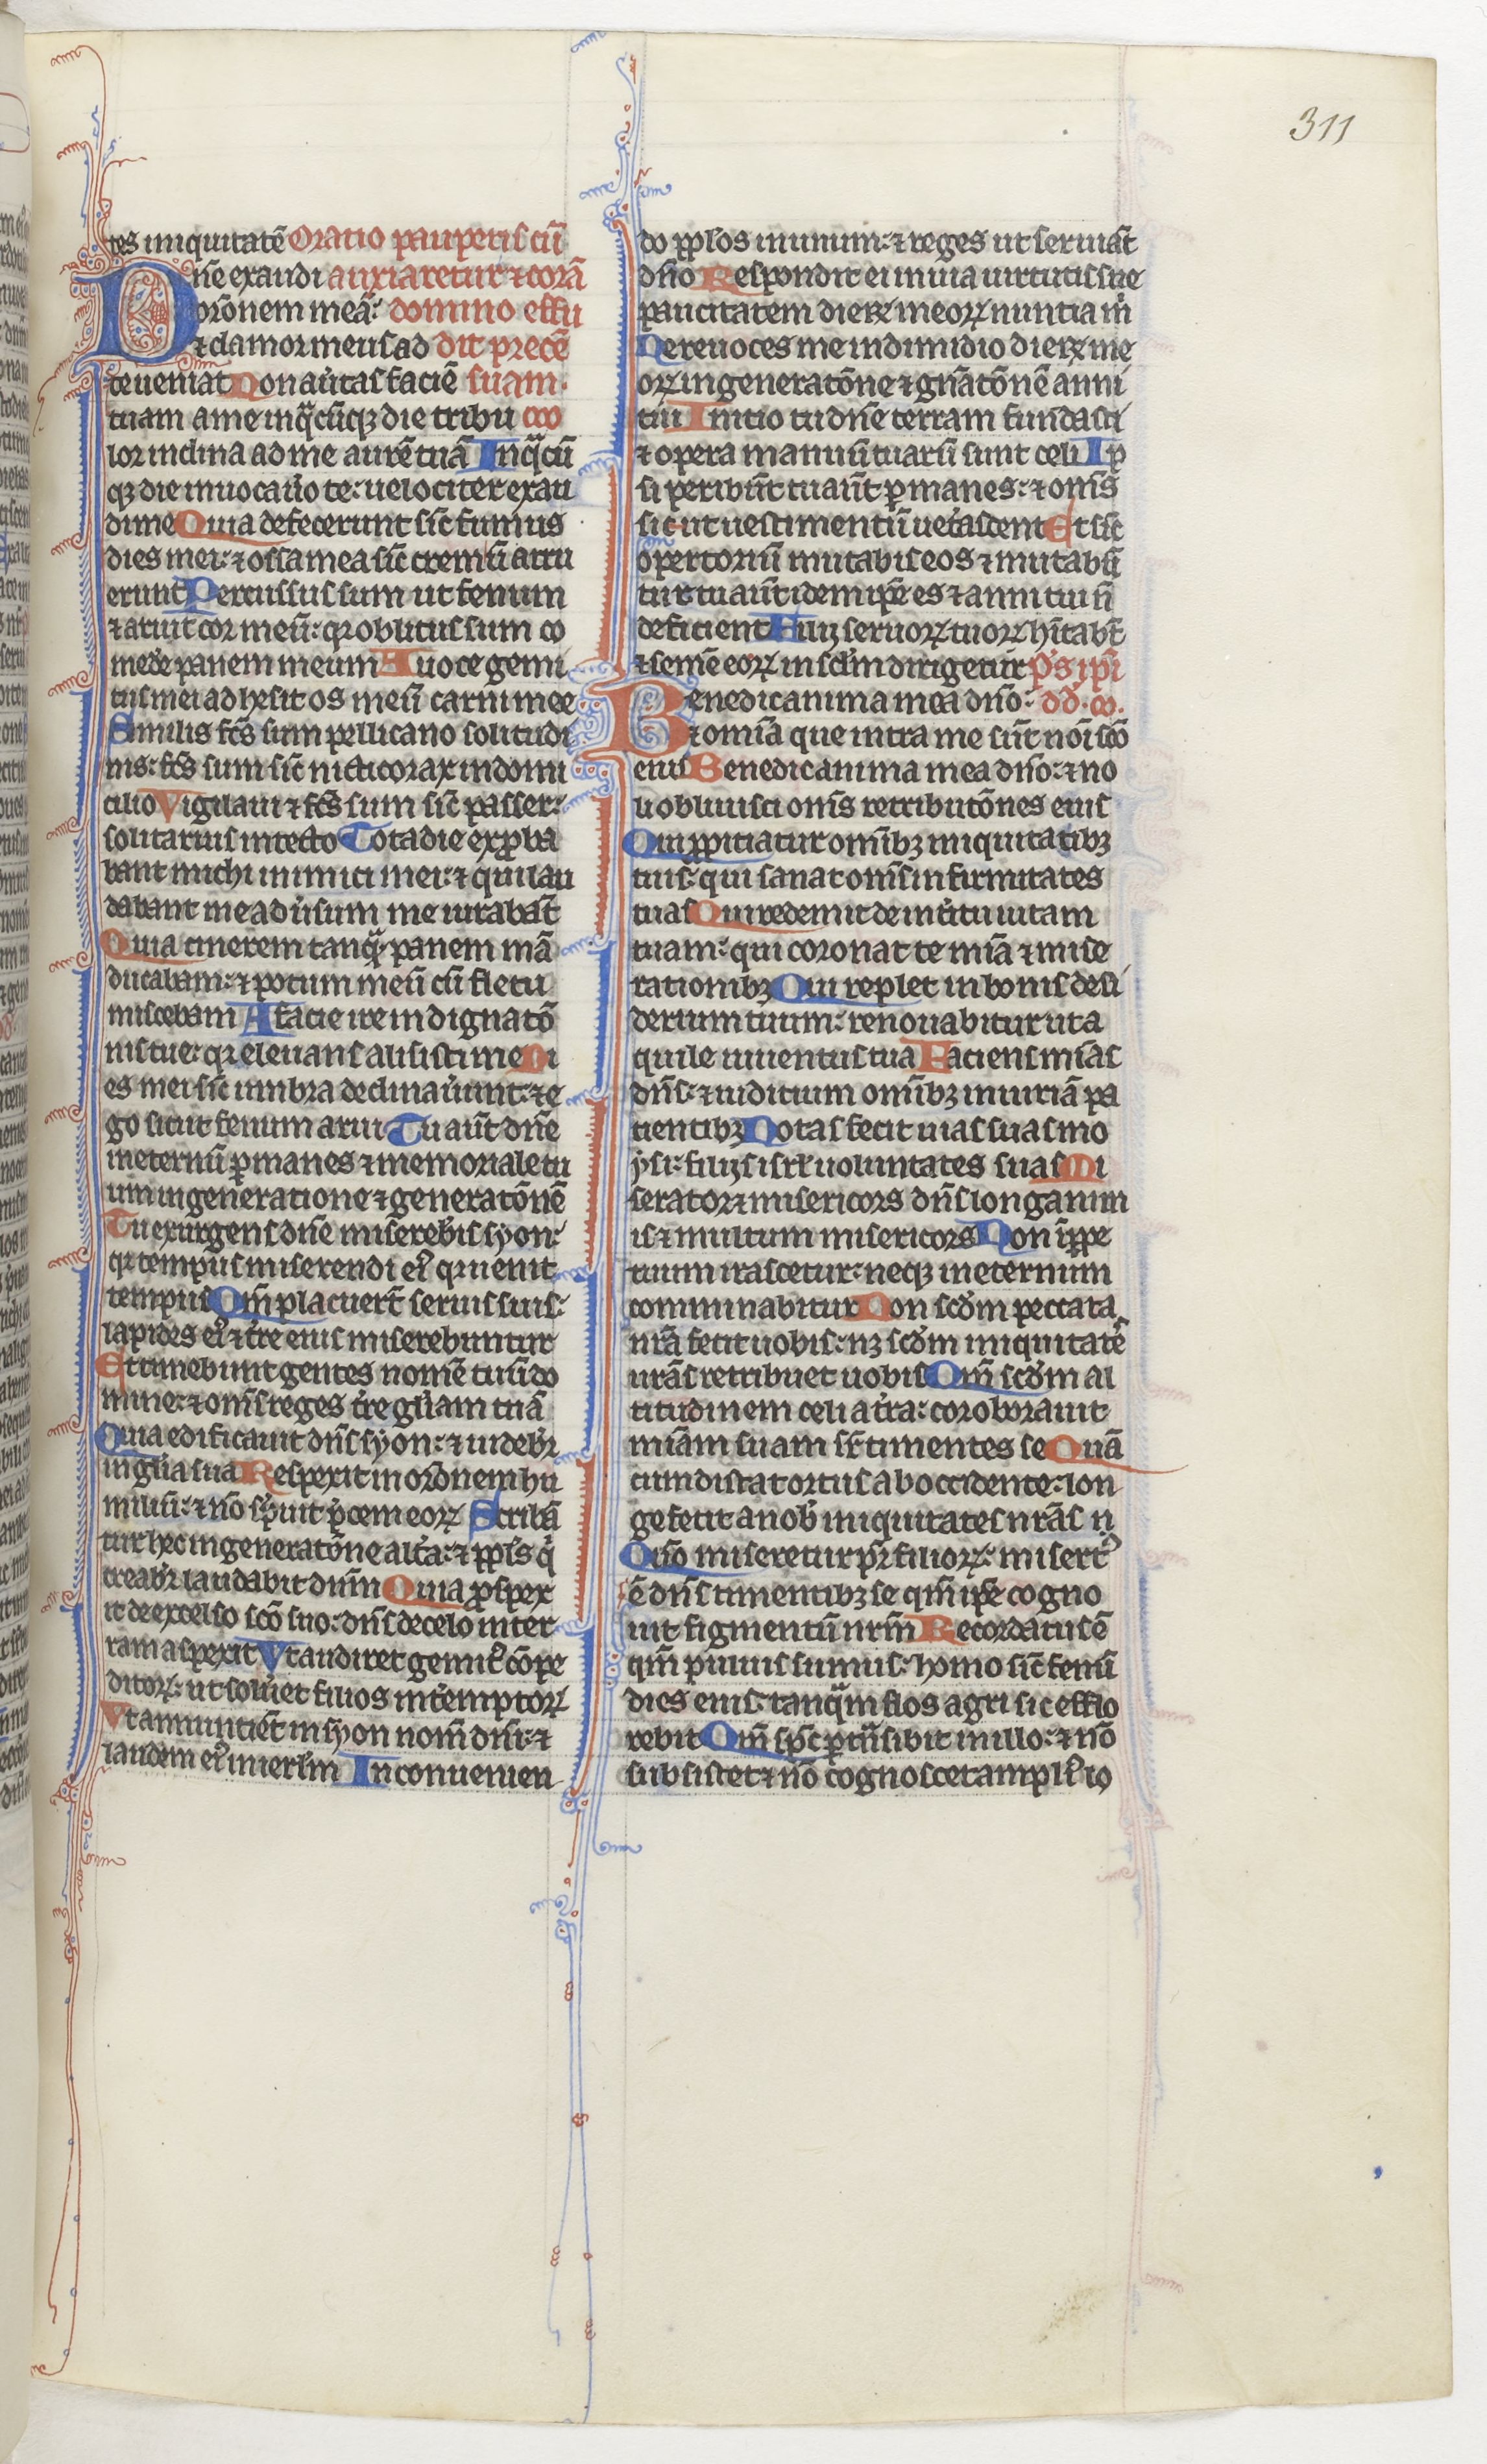 311
tes iniquitatē Oratio pauperis cū
Dn̄e exaudi anxiaretur ⁊ corā
or̄onem meā: domino effu
⁊ clamor meus ad dit precē
te ueniat Non au̓tas faciē suam.
tuam a me inq̄cūqꝫ die tribu
lor inclina ad me aurē tuā Inq̄cū
qꝫ die inuocau̓o te: uelociter exau
di me Quia defecerunt sic̄ fumus
dies mei: ⁊ ossa mea sic̄ cremiū aru
erunt Percussus sum ut fenum
⁊ aruit cor meū: qr oblitus sum co
med̓e panem meum A uoce gemi
tus mei adhesit os meū carni mee
Similis fc̄s sum pellicano solitudi
nis: fc̄s sum sic̄ nicticorax in domi
cilio Vigilaui ⁊ fc̄s sum sic̄ passer:
solitarius in tecto Tota die exꝓba
bant michi inimici mei: ⁊ qui lau
dabant me adu̓sum me iurabāt
Quia cinerem tanqͣ panem mā
ducabam: ⁊ potum meū cū fletu
miscebam A facie ire indignatō
nis tue: qr eleuans alisisti me Di
es mei sic̄ umbra declinau̓unt: ⁊ e
go sicut fenum arui Tu aūt dn̄e
ineternū ꝑmanes ⁊ memoriale tu
um in generatione ⁊ generatōnē
Tu exurgens dn̄e misereb̓is syon:
qr tempus miserendi ei᾽ qr uenit
tempus Qm̄ placuer̄t seruis suis:
lapides ei᾽ ⁊ tr̄e eius miserebuntur
Et timebunt gentes nomē tuū do
mine: ⁊ om̄s reges tr̄e gl̓iam tuā
Quia edificauit dn̄s syon: ⁊ uideb̓r
in gl̓ia sua Respexit in or̄onem hu
miliū: ⁊ nō sp̓uit p̓cem eoꝝ Scribā
tur hec in generatōne alt̓a: ⁊ ppl̓s q̓
creab̓r laudabit dnm̄ Quia ꝓspex
it de excelso scō suo: dn̄s de celo in ter
ram aspexit Vt audiret gemit᾽ cōpe
ditoꝝ: ut solu̓et filios int̓emptoꝝ
Vt annuntiēt in syon nom̄ dn̄i: ⁊
laudem ei᾽ in ierl̓m In conuenien
do ppl̓os in unum: ⁊ reges ut seruiāt
dn̄o Respondit ei in uia uirtutis sue
paucitatem dieꝝ meoꝝ nuntia m̓
Ne reuoces me in dimidio dieꝝ me
oꝝ in generatōne ⁊ gn̄atōnē anni
tui Initio tu dn̄e terram fundasti
⁊ opera manuū tuarū sunt celi Ip
si peribūt tu aūt ꝑmanes: ⁊ om̄s
sicut uestimentū uet̓ascent Et sic̄
opertoriū mutabis eos ⁊ mutabū
tur tu aūt idem ipē es ⁊ anni tui n̄
deficient Filij seruoꝝ tuoꝝ hītabt̄
⁊ semē eoꝝ in scl̓m dirigetur p̓s ip̄i
Benedic anima mea dn̄o: dd̄.
⁊ omīa que intra me sūt noi scō
eius Benedic anima mea dn̄o: ⁊ no
li obliuisci om̄s retributōnes eius
Qui ꝓpitiatur omībꝫ iniquitatibꝫ
tuis: qui sanat om̄s infirmitates
tuas Qui redemit de int̓itu uitam
tuam: qui coronat te mīa ⁊ mise
rationibꝫ Qui replet in bonis desi
derium tuum: renouabitur ut a
quile iuuentus tua Faciens mīas
dn̄s: ⁊ iuditium omībꝫ iniuriā pa
tientibꝫ Notas fecit uias suas mo
ysi: filijs isrł uoluntates suas Mi
serator ⁊ misericors dn̄s longanim
is ⁊ multum misericors Non īꝑpe
tuum irascetur: neqꝫ ineternum
comminabitur Non scd̓m peccata
nr̄a fecit uobis: nꝫ scd̓m iniquitatē
ur̄as retribuet uobis Qm̄ scd̓m al
titudinem celi a tr̄a: coroborauit
mīam suam sr̄ timentes se Quā
tum distat ortus ab occidente: lon
ge fecit a nob̓ iniquitates nr̄as
Quō miseretur pr̄ filioꝝ: misert᾽
ē dn̄s timentibꝫ se qm̄ ipē cogno
uit figmentū nrm̄ Recordatus ē
qm̄ puluis sumus: homo sic̄ fenū
dies eius: tanqͣm flos agri sic efflo
rebit Qm̄ sp̄c ꝑtn̓sibit in illo: ⁊ nō
subsistet ⁊ nō cognoscet ampli᾽ lo